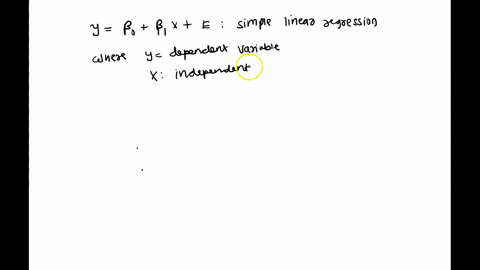 y = β₀ + β₁ x + E : simple linear regression
where y = dependent variable
x : independent